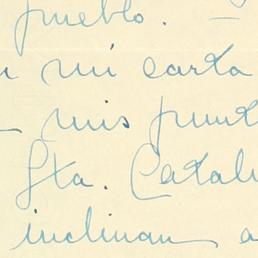 pueblo.
mi carta
mis punt
Sta. Catal
inclinan a